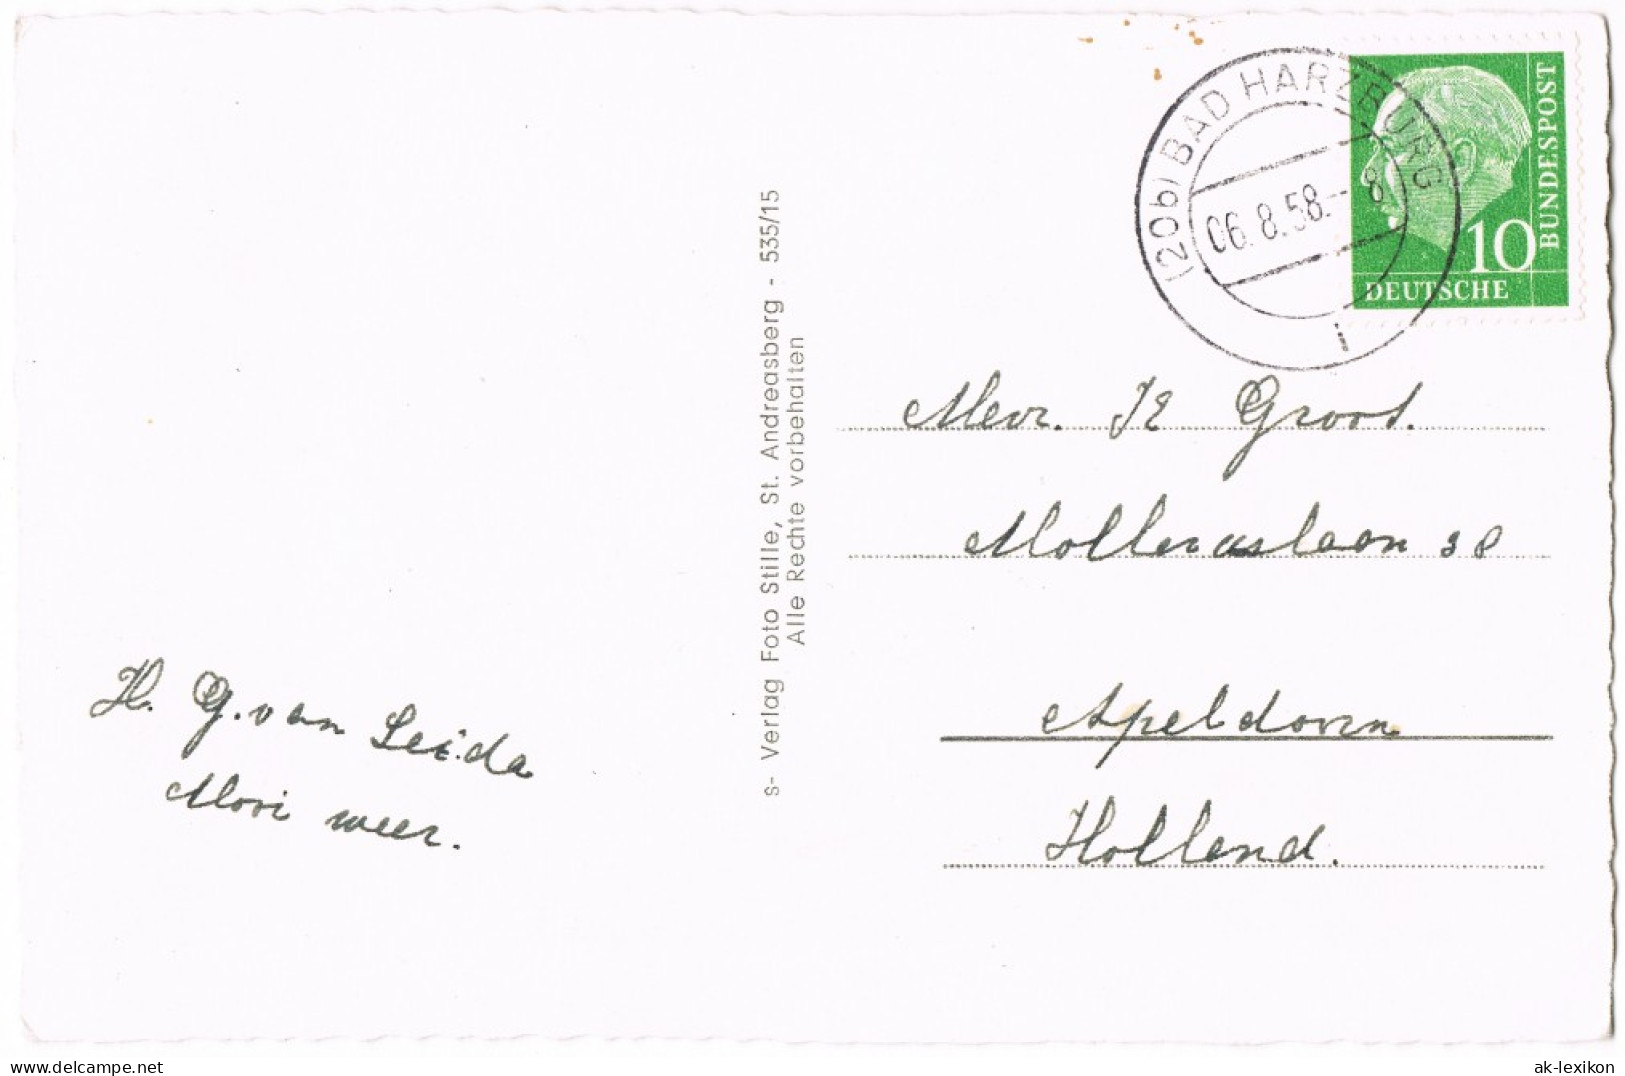 (20b) BAD HARZBURG
06.8.58.-8
i
BUNDESPOST
10
DEUTSCHE
Mevr. JE Groot.
Molleruslaan 38
Apeldoorn
Holland.
s- Verlag Foto Stille, St. Andreasberg - 535/15
Alle Rechte vorbehalten
H. G. van Leida
Mooi weer.
www.ansichtskarten-lexikon.de
ak-lexikon